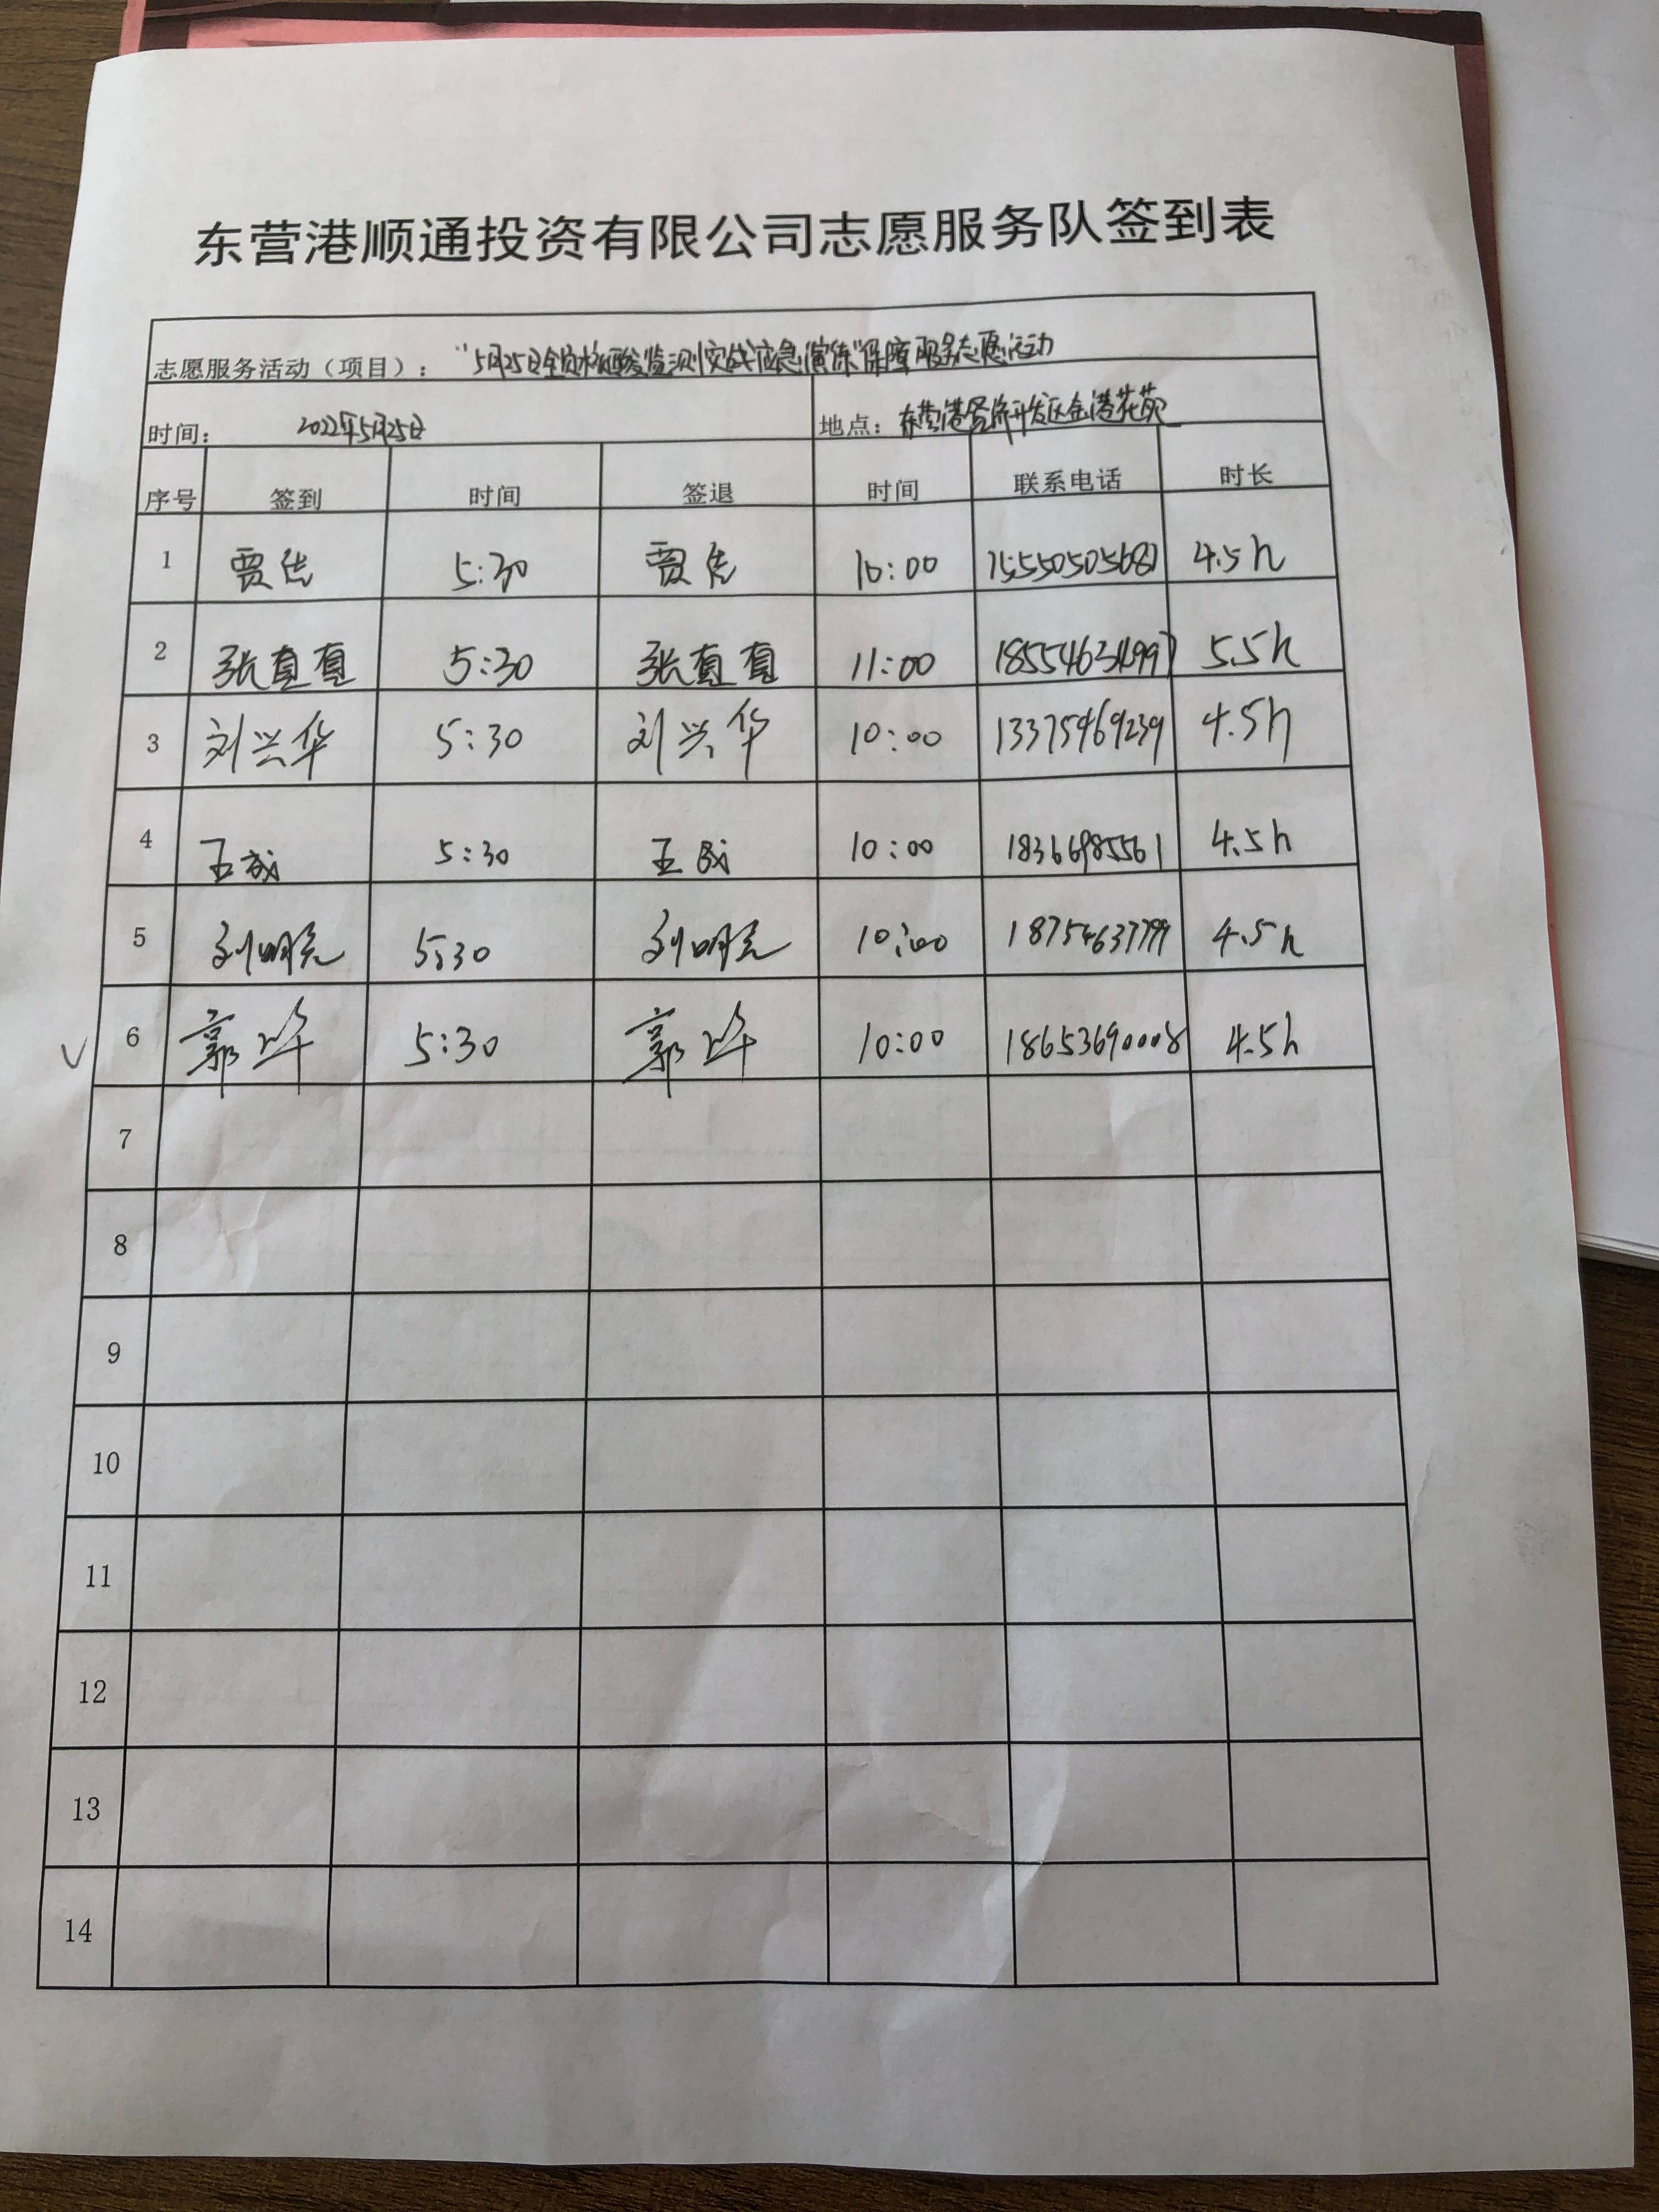 东营港顺通投资有限公司志愿服务队签到表
志愿服务活动（项目）： “5月25日全员核酸监测实战应急演练”保障服务志愿活动
时间： 2022年5月25日 地点： 东营港经济开发区金港花苑
序号 签到 时间 签退 时间 联系电话 时长
1 贾佳 5:30 贾佳 10:00 15550505681 4.5h
2 张真真 5:30 张真真 11:00 18554634997 5.5h
3 刘兴华 5:30 刘兴华 10:00 13375469239 4.5h
4 王成 5:30 王成 10:00 18366985561 4.5h
5 刘明亮 5:30 刘明亮 10:00 18754637799 4.5h
6 郭 5:30 郭 10:00 18653690008 4.5h
7
8
9
10
11
12
13
14